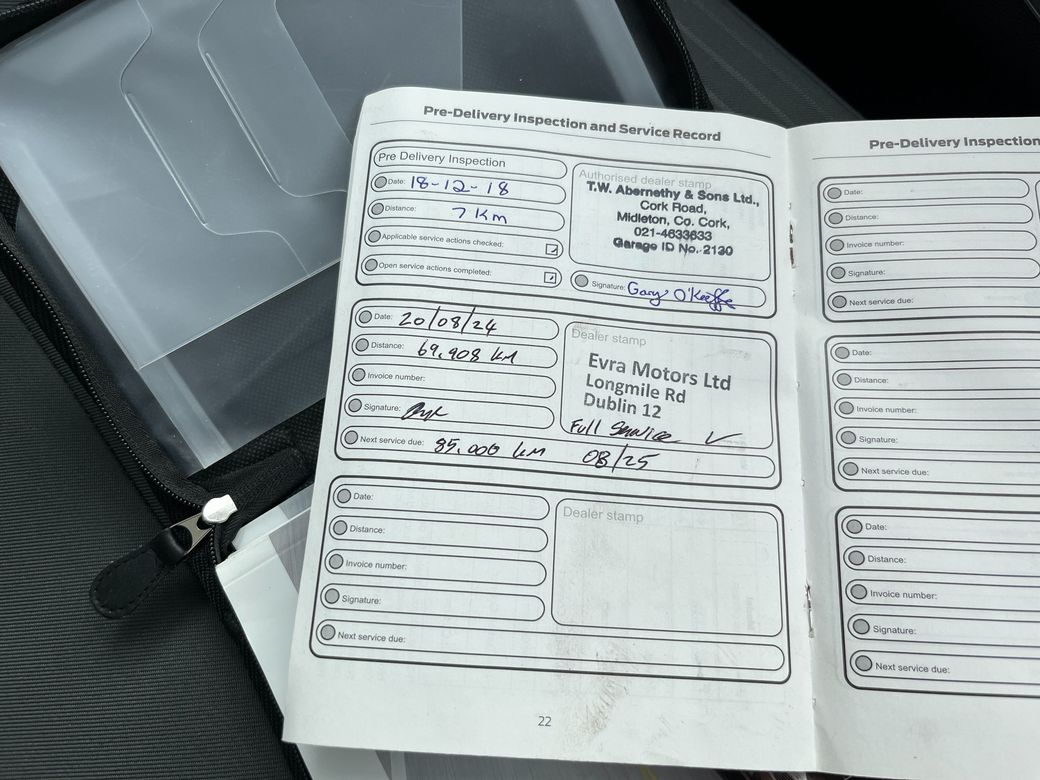 Pre-Delivery Inspection and Service Record
Pre Delivery Inspection
Date: 18-12-18
Distance: 7 Km
Applicable service actions checked:
Open service actions completed:
Authorised dealer stamp
T.W. Abernethy & Sons Ltd.,
Cork Road,
Midleton, Co. Cork,
021-4633633
Garage ID No. 2130
Signature: Gary O'Keeffe
Date: 20/08/24
Distance: 69,908 KM
Invoice number:
Signature:
Dealer stamp
Evra Motors Ltd
Longmile Rd
Dublin 12
Full Service ✓
Next service due: 85,000 KM 08/25
Date:
Distance:
Invoice number:
Signature:
Dealer stamp
Next service due:
22
Pre-Delivery Inspection
Date:
Distance:
Invoice number:
Signature:
Next service due:
Date:
Distance:
Invoice number:
Signature:
Next service due:
Date:
Distance:
Invoice number:
Signature:
Next service due: